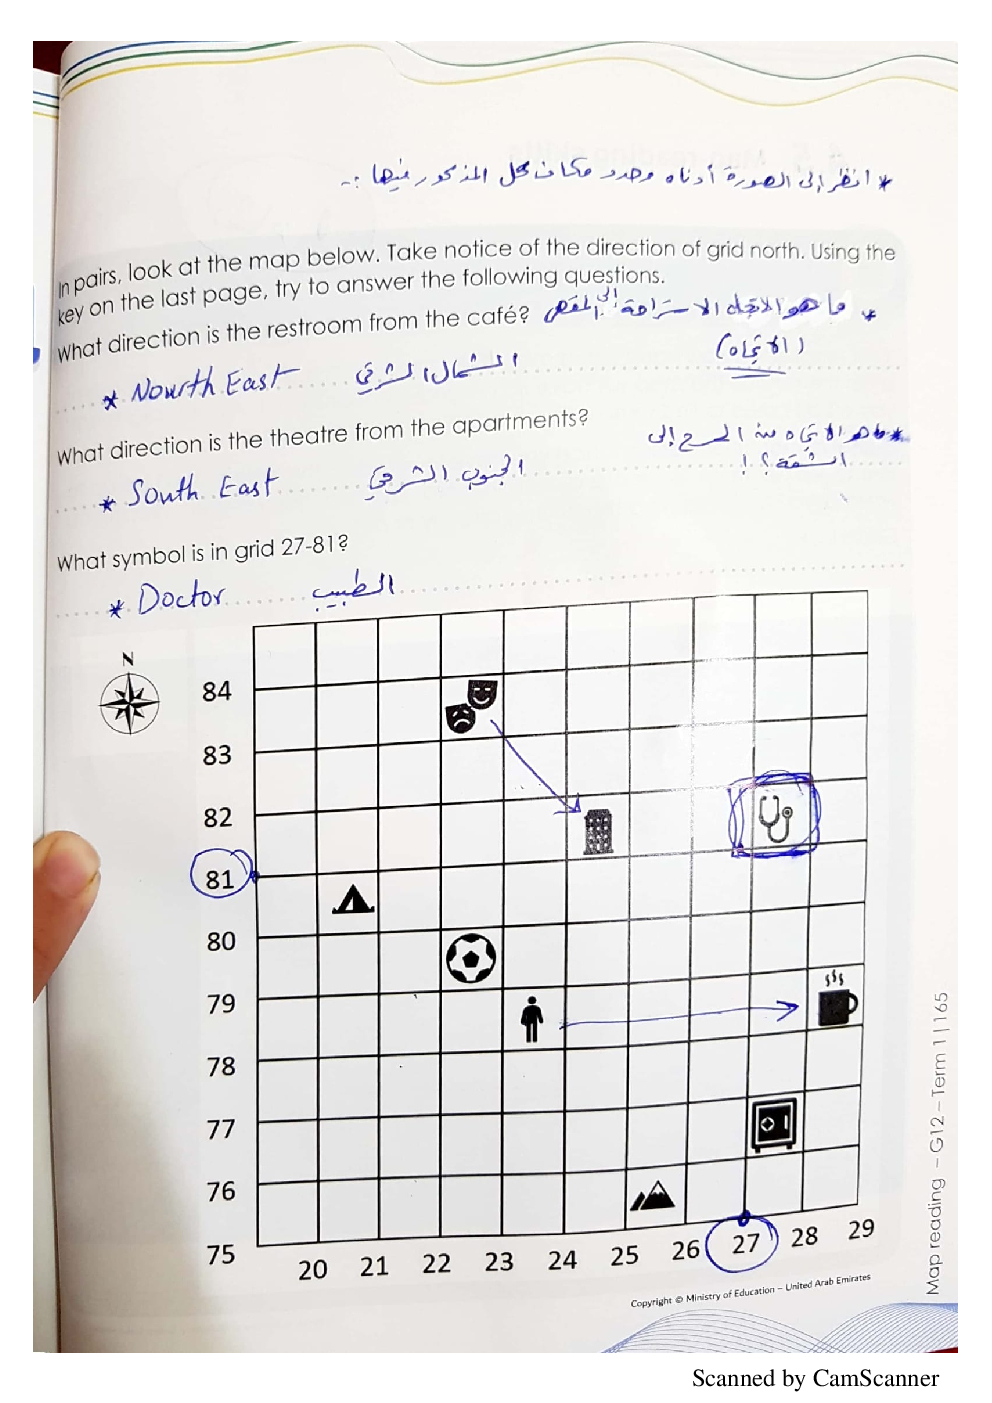 * انظر إلى الصورة أدناه وحدد مكان كل المذكور فيها :-
In pairs, look at the map below. Take notice of the direction of grid north. Using the
key on the last page, try to answer the following questions.
What direction is the restroom from the café? * ما هو الاتجاه الاستراحة إلى المقهى
(الاتجاه)
* Nourth East الشمال الشرقي
What direction is the theatre from the apartments? * ما هو الاتجاه من المسرح إلى
الشقة؟!
* South East الجنوب الشرقي
What symbol is in grid 27-81?
* Doctor الطبيب
N
84
83
82
81
80
79
78
77
76
75
20 21 22 23 24 25 26 27 28 29
Copyright © Ministry of Education – United Arab Emirates
Map reading – G12 – Term 1 | 165
Scanned by CamScanner